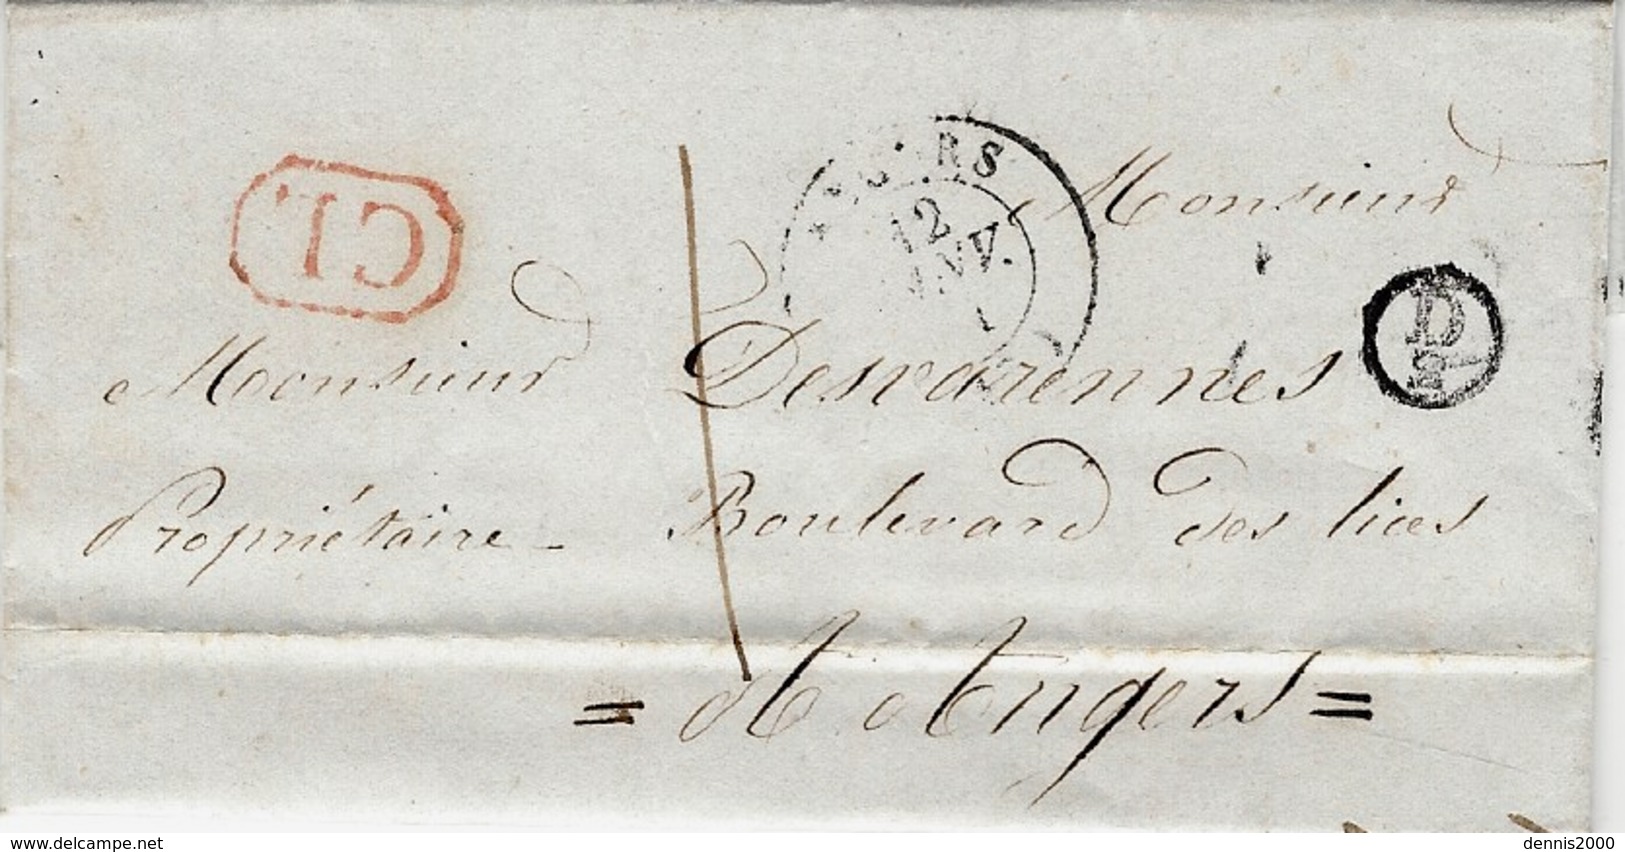 CL.
12
JANV.
Monsieur
D
2
Monsieur Desvarennes
Propriétaire - Boulevard des lices
= A Angers =
delcampe.net
dennis2000